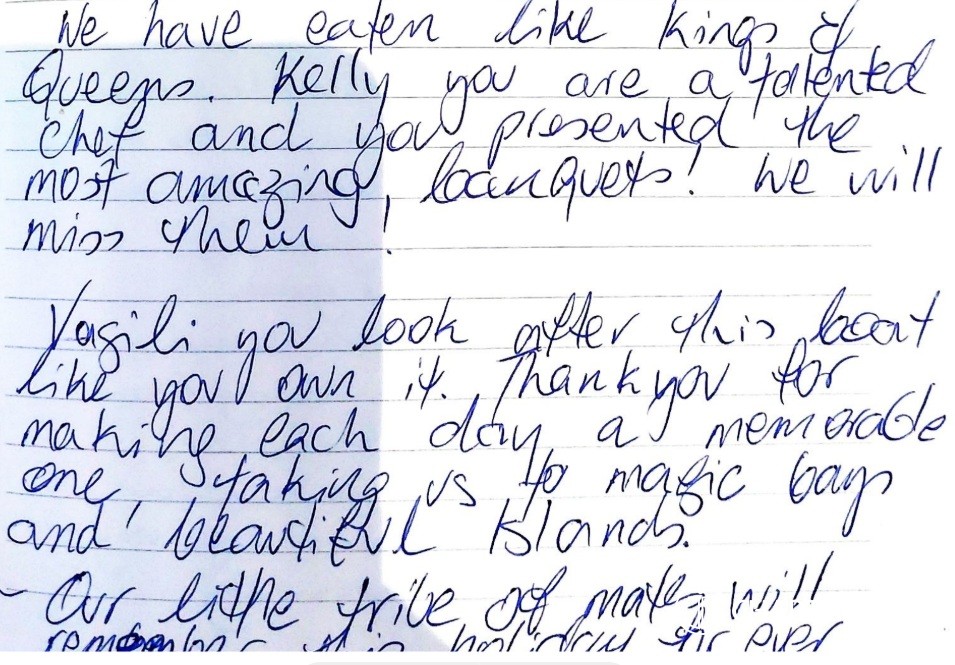 We have eaten like Kings &
Queens. Kelly you are a talented
chef and you presented the
most amazing banquets! We will
miss them!
Vasili you look after this boat
like you own it. Thank you for
making each day a memorable
one, taking us to magic bays
and beautiful Islands.
- Our little tribe of mates will
remember this holiday for ever